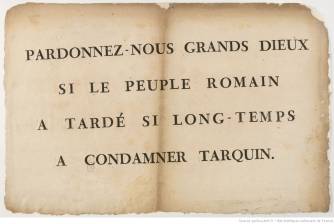 PARDONNEZ-NOUS GRANDS DIEUX
SI LE PEUPLE ROMAIN
A TARDÉ SI LONG-TEMPS
A CONDAMNER TARQUIN.